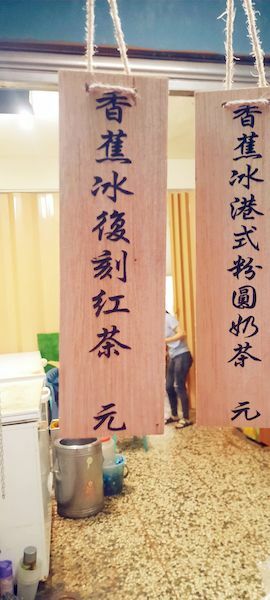 香蕉冰復刻紅茶 元
香蕉冰港式粉圓奶茶 元